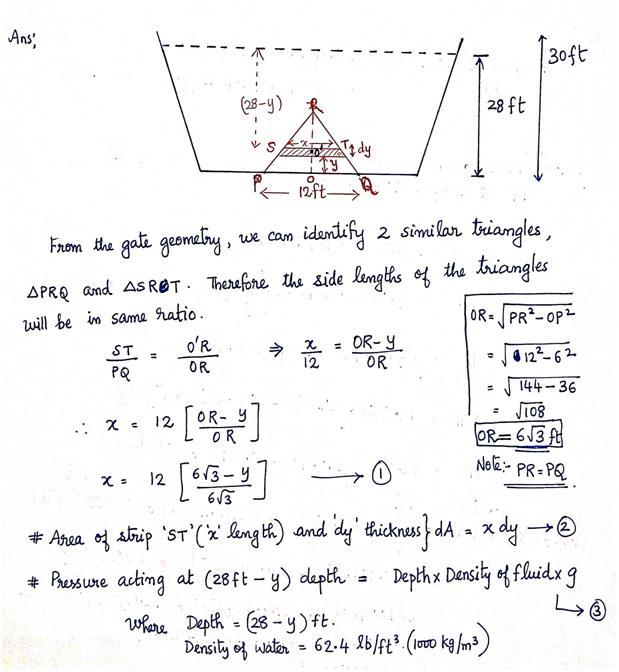 Ans;
30ft
(28-y)
28 ft
R
S
x
T
dy
O'
y
P
O
Q
12ft
From the gate geometry, we can identify 2 similar triangles,
△PRQ and △SRT. Therefore the side lengths of the triangles
will be in same ratio.
ST/PQ = O'R/OR ⇒ x/12 = OR-y/OR
∴ x = 12 [OR-y/OR]
x = 12 [6√3-y/6√3] → ①
OR = √PR²-OP²
= √12²-6²
= √144-36
= √108
OR = 6√3 ft
Note:- PR=PQ
# Area of strip 'ST' ('x' length) and 'dy' thickness} dA = x dy → ②
# Pressure acting at (28ft-y) depth = Depth x Density of fluid x g
→ ③
where Depth = (28-y) ft.
Density of water = 62.4 lb/ft³. (1000 kg/m³)